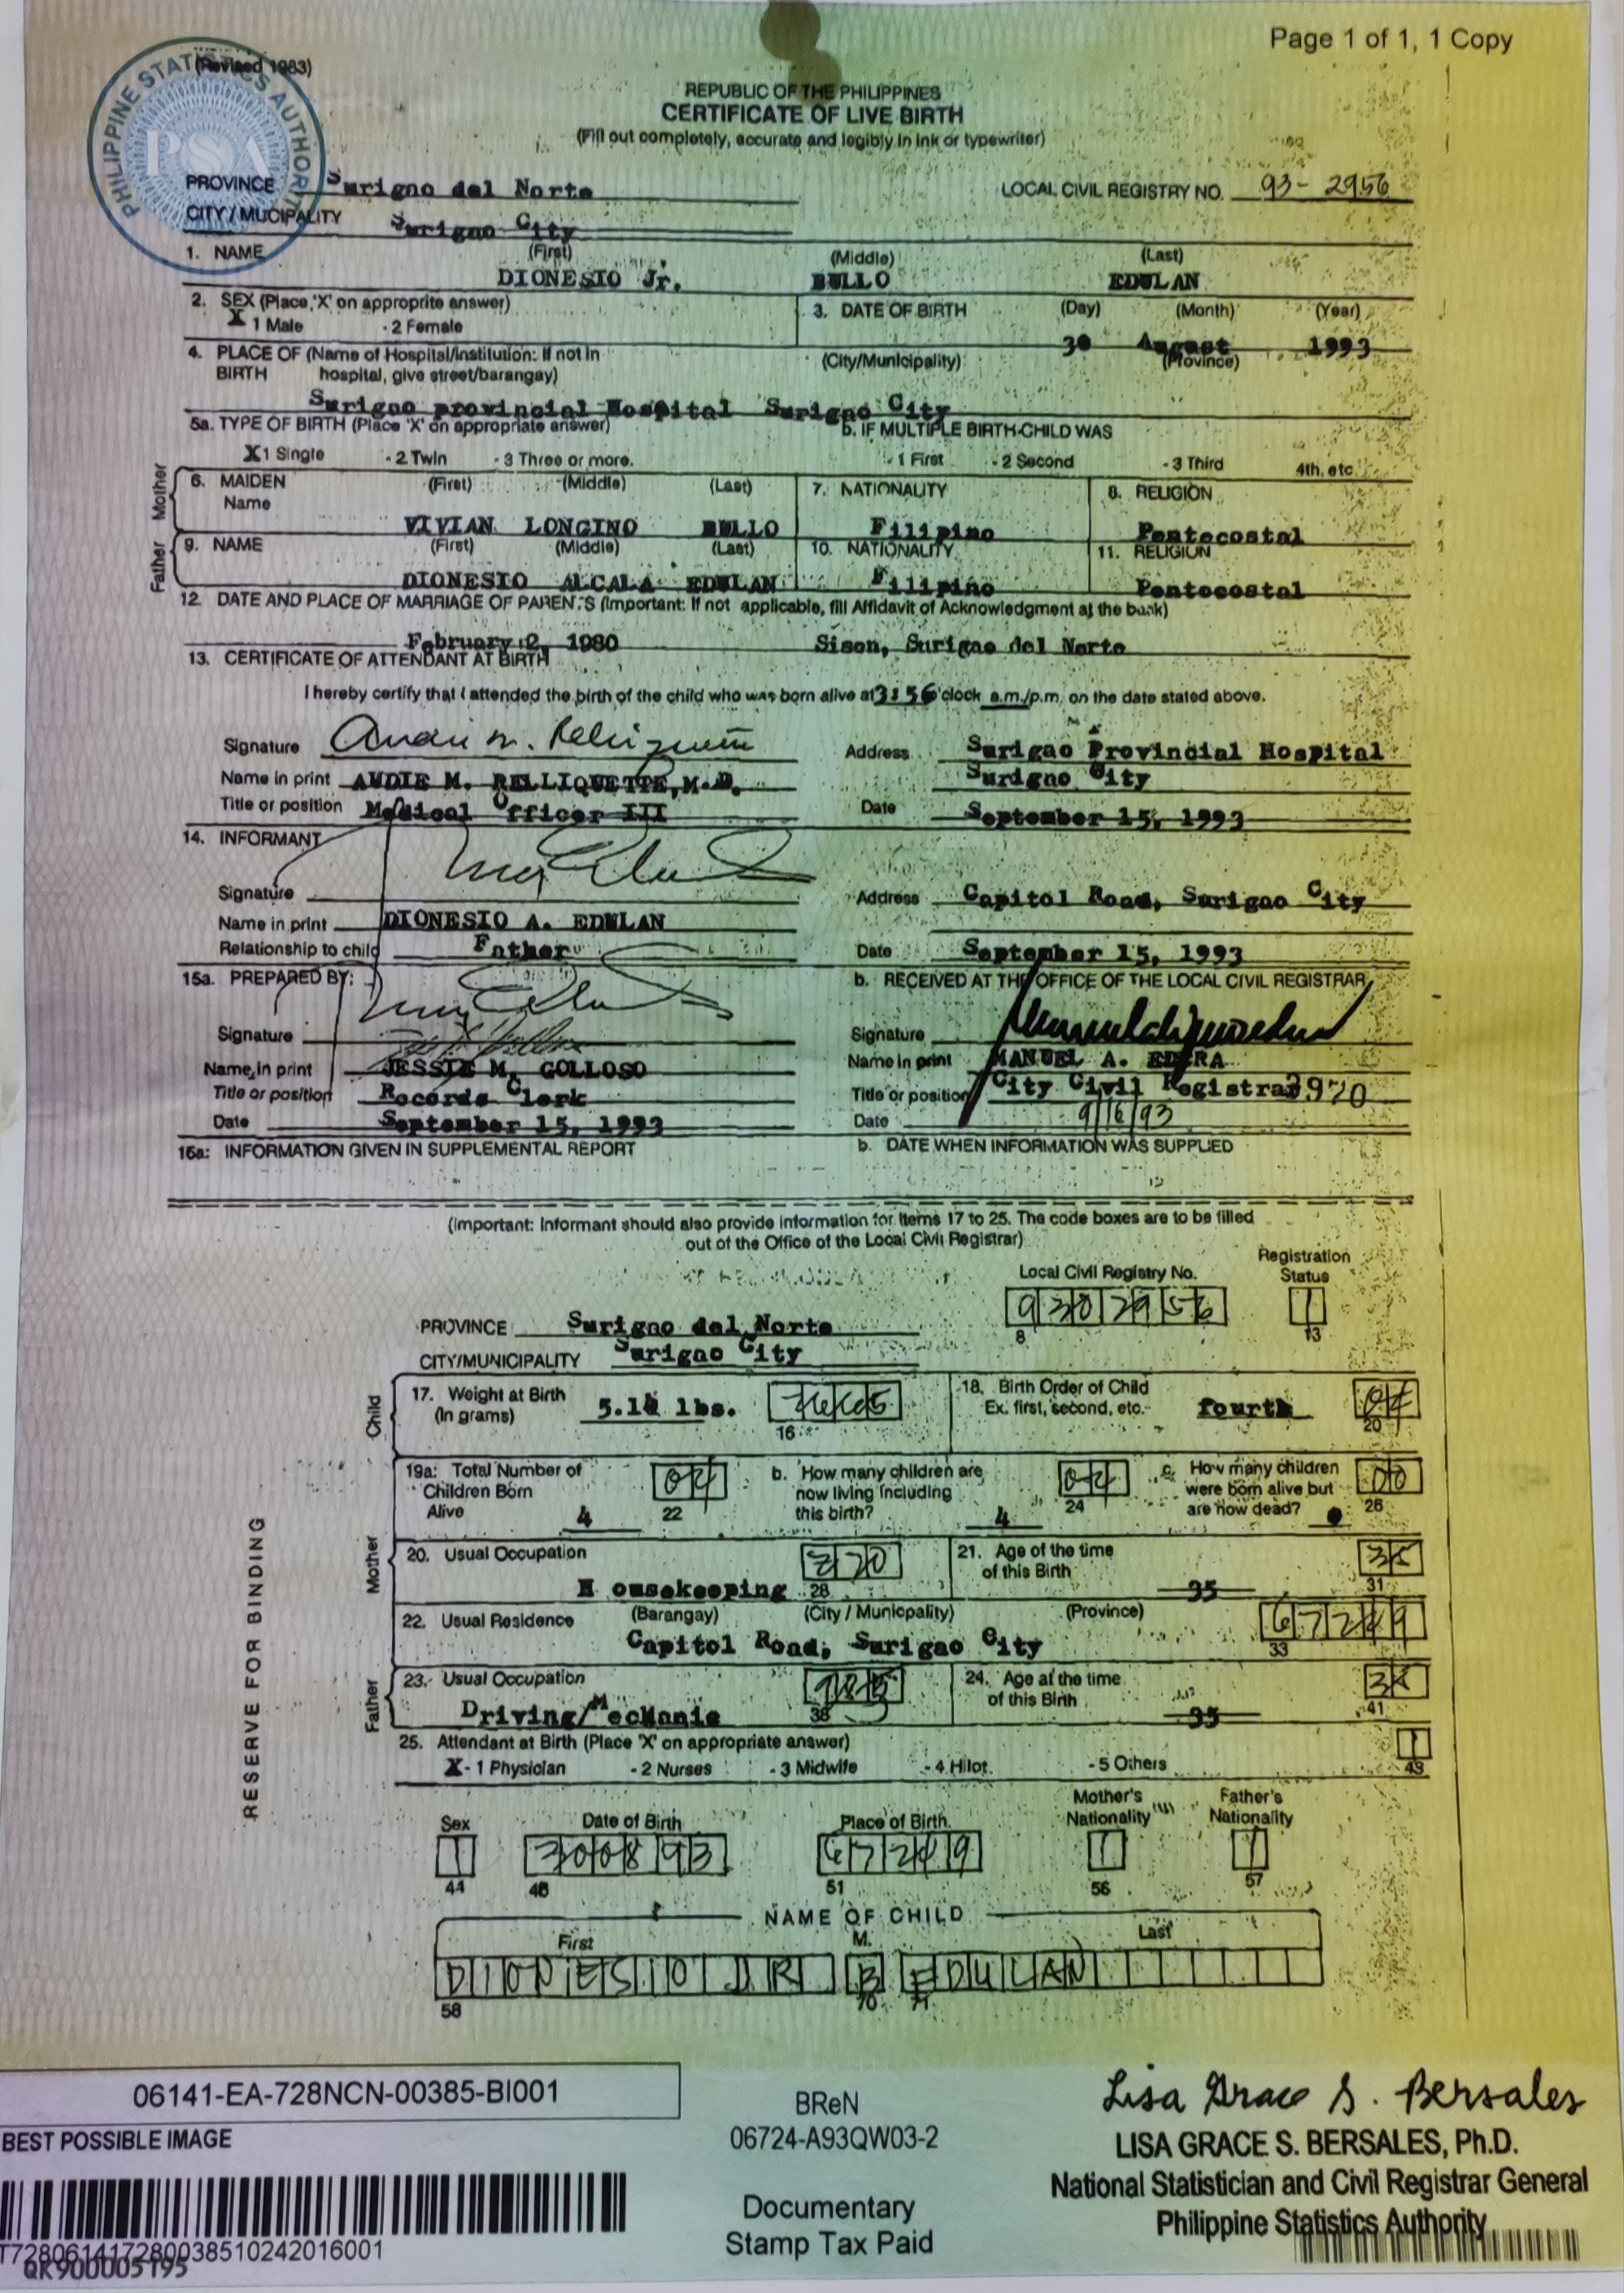 Page 1 of 1, 1 Copy
(Revised 1983)
PHILIPPINE STATISTICS AUTHORITY
PSA
REPUBLIC OF THE PHILIPPINES
CERTIFICATE OF LIVE BIRTH
(Fill out completely, accurate and legibly in ink or typewriter)
PROVINCE Surigao del Norte LOCAL CIVIL REGISTRY NO. 93-2956
CITY / MUCIPALITY Surigao City
1. NAME (First) (Middle) (Last)
DIONESIO Jr. BULLO EDULAN
2. SEX (Place 'X' on approprite answer) 3. DATE OF BIRTH (Day) (Month) (Year)
X 1 Male - 2 Female 30 August 1993
4. PLACE OF (Name of Hospital/Institution: If not in (City/Municipality) (Province)
BIRTH hospital, give street/barangay)
Surigao provincial Hospital Surigao City
5a. TYPE OF BIRTH (Place 'X' on appropriate answer) b. IF MULTIPLE BIRTH-CHILD WAS
X 1 Single - 2 Twin - 3 Three or more. - 1 First - 2 Second - 3 Third 4th, etc.
Mother
6. MAIDEN (First) (Middle) (Last) 7. NATIONALITY 8. RELIGION
Name
VIVIAN LONGINO BULLO Filipino Pentecostal
Father
9. NAME (First) (Middle) (Last) 10. NATIONALITY 11. RELIGION
DIONESIO ALCALA EDULAN Filipino Pentecostal
12. DATE AND PLACE OF MARRIAGE OF PARENTS (Important: If not applicable, fill Affidavit of Acknowledgment at the back)
February 2, 1980 Sison, Surigao del Norte
13. CERTIFICATE OF ATTENDANT AT BIRTH
I hereby certify that I attended the birth of the child who was born alive at 3:56 o'clock a.m./p.m. on the date stated above.
Signature Address Surigao Provincial Hospital
Name in print AUDIE M. RELLIQUETTE, M.D. Surigao City
Title or position Medical Officer III Date September 15, 1993
14. INFORMANT
Signature Address Capitol Road, Surigao City
Name in print DIONESIO A. EDULAN
Relationship to child Father Date September 15, 1993
15a. PREPARED BY: b. RECEIVED AT THE OFFICE OF THE LOCAL CIVIL REGISTRAR
Signature Signature
Name in print JESSIE M. GOLLOSO Name in print MANUEL A. EDERA
Title or position Records Clerk Title or position City Civil Registrar 3970
Date September 15, 1993 Date 9/16/93
16a: INFORMATION GIVEN IN SUPPLEMENTAL REPORT b. DATE WHEN INFORMATION WAS SUPPLIED
(Important: Informant should also provide information for items 17 to 25. The code boxes are to be filled
out of the Office of the Local Civil Registrar)
Local Civil Registry No. Registration Status
9302956 1
8 13
PROVINCE Surigao del Norte
CITY/MUNICIPALITY Surigao City
RESERVE FOR BINDING
Child
17. Weight at Birth 18. Birth Order of Child
(In grams) 5.1 lbs. Ex. first, second, etc. fourth 04
16 20
Mother
19a: Total Number of Children Born Alive 4 04 22
b. How many children are now living including this birth? 4 04 24
c. How many children were born alive but are now dead? 0 00 26
20. Usual Occupation 21. Age of the time
of this Birth 35 35
Housekeeping 28 31
22. Usual Residence (Barangay) (City / Municpality) (Province) 67249
Capitol Road, Surigao City 33
Father
23. Usual Occupation 24. Age at the time
of this Birth 35 35
Driving/Mechanic 38 41
25. Attendant at Birth (Place 'X' on appropriate answer) 1
X - 1 Physician - 2 Nurses - 3 Midwife - 4 Hilot - 5 Others 43
Sex Date of Birth Place of Birth Mother's Nationality Father's Nationality
1 300893 67249 1 1
44 46 51 56 57
NAME OF CHILD
First M. Last
DIONESIO JR B EDULAN
58 70 71
06141-EA-728NCN-00385-BI001
BEST POSSIBLE IMAGE
T728061417280038510242016001
QK900005195
BReN
06724-A93QW03-2
Documentary
Stamp Tax Paid
Lisa Grace S. Bersales
LISA GRACE S. BERSALES, Ph.D.
National Statistician and Civil Registrar General
Philippine Statistics Authority